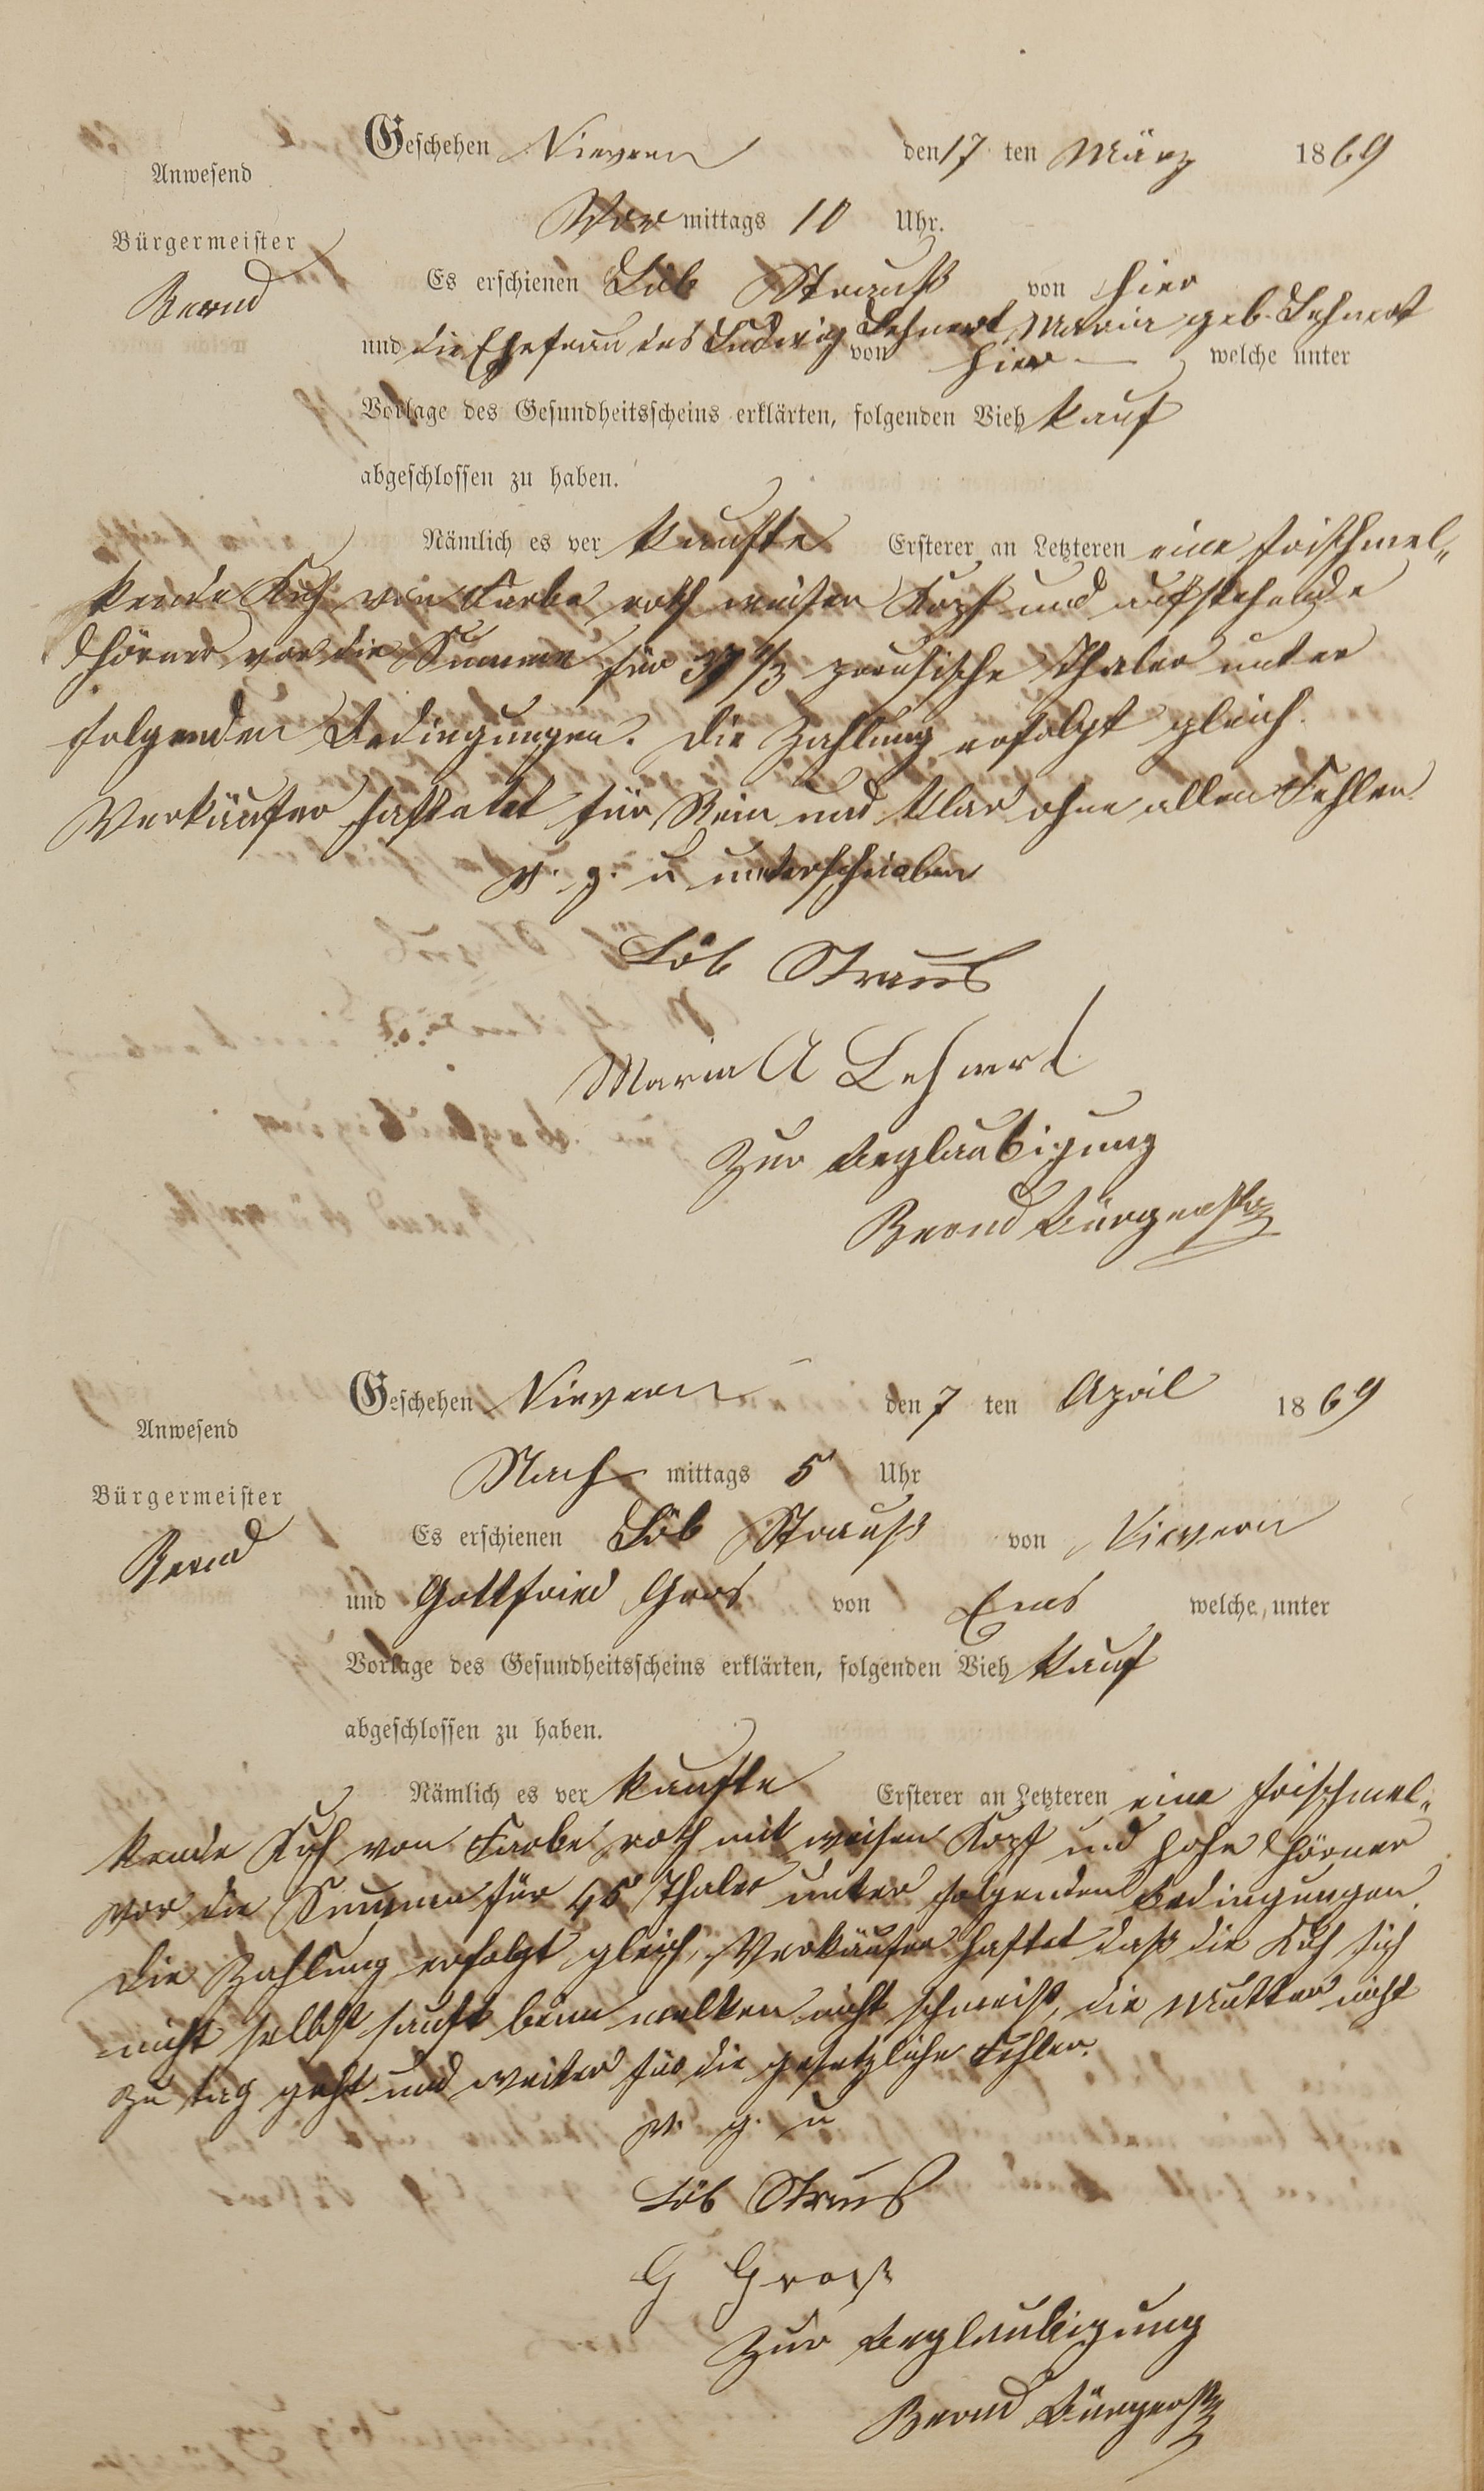 Geschehen Nievern den 17 ten März 1869
Anwesend
Vor mittags 10 Uhr.
Bürgermeister
Bernd
Es erschienen Löb Strauß von hier
und die Ehefrau des Ludwig Lehnert Maria geb. Lehnert
von hier — welche unter
Vorlage des Gesundheitsscheins erklärten, folgenden Vieh kauf
abgeschlossen zu haben.
Nämlich es ver kaufte Ersterer an Letzteren eine frischmel„
kende Kuh von Farbe roth weisen Kopf und aufstehende
Hörner vor die Summe für 37 1/3 preusische Thaler unter
folgenden Bedingungen. Die Zahlung erfolgt gleich.
Verkäufer haftetet für Rein und klar ohne allen Fehler
v. g. u unterschrieben
Löb Straus
Maria A Lehnert
Zur Beglaubigung
Bernd Bürgermstr
Geschehen Nievern den 7 ten April 1869
Anwesend
Nach mittags 5 Uhr
Bürgermeister
Bernd
Es erschienen Löb Strauß von Nievern
und Gottfried Gros von Ems welche, unter
Vorlage des Gesundheitsscheins erklärten, folgenden Vieh kauf
abgeschlossen zu haben.
Nämlich es ver kaufte Ersterer an Letzteren eine frischmel„
kende Kuh von Farbe roth mit weisen Kopf und hohe Hörner
vor die Summe für 45 Thaler unter folgenden Bedingungen.
Die Zahlung erfolgt gleich, Verkäufer haftet daß die Kuh sich
nicht selbst sauft beim melken nicht schmeist, die Mutter nicht
zu tag geht und weiter für die gesetzliche Fehler.
v. g. u
Löb Straus
G Groß
Zur Beglaubigung
Bernd Bürgermstr